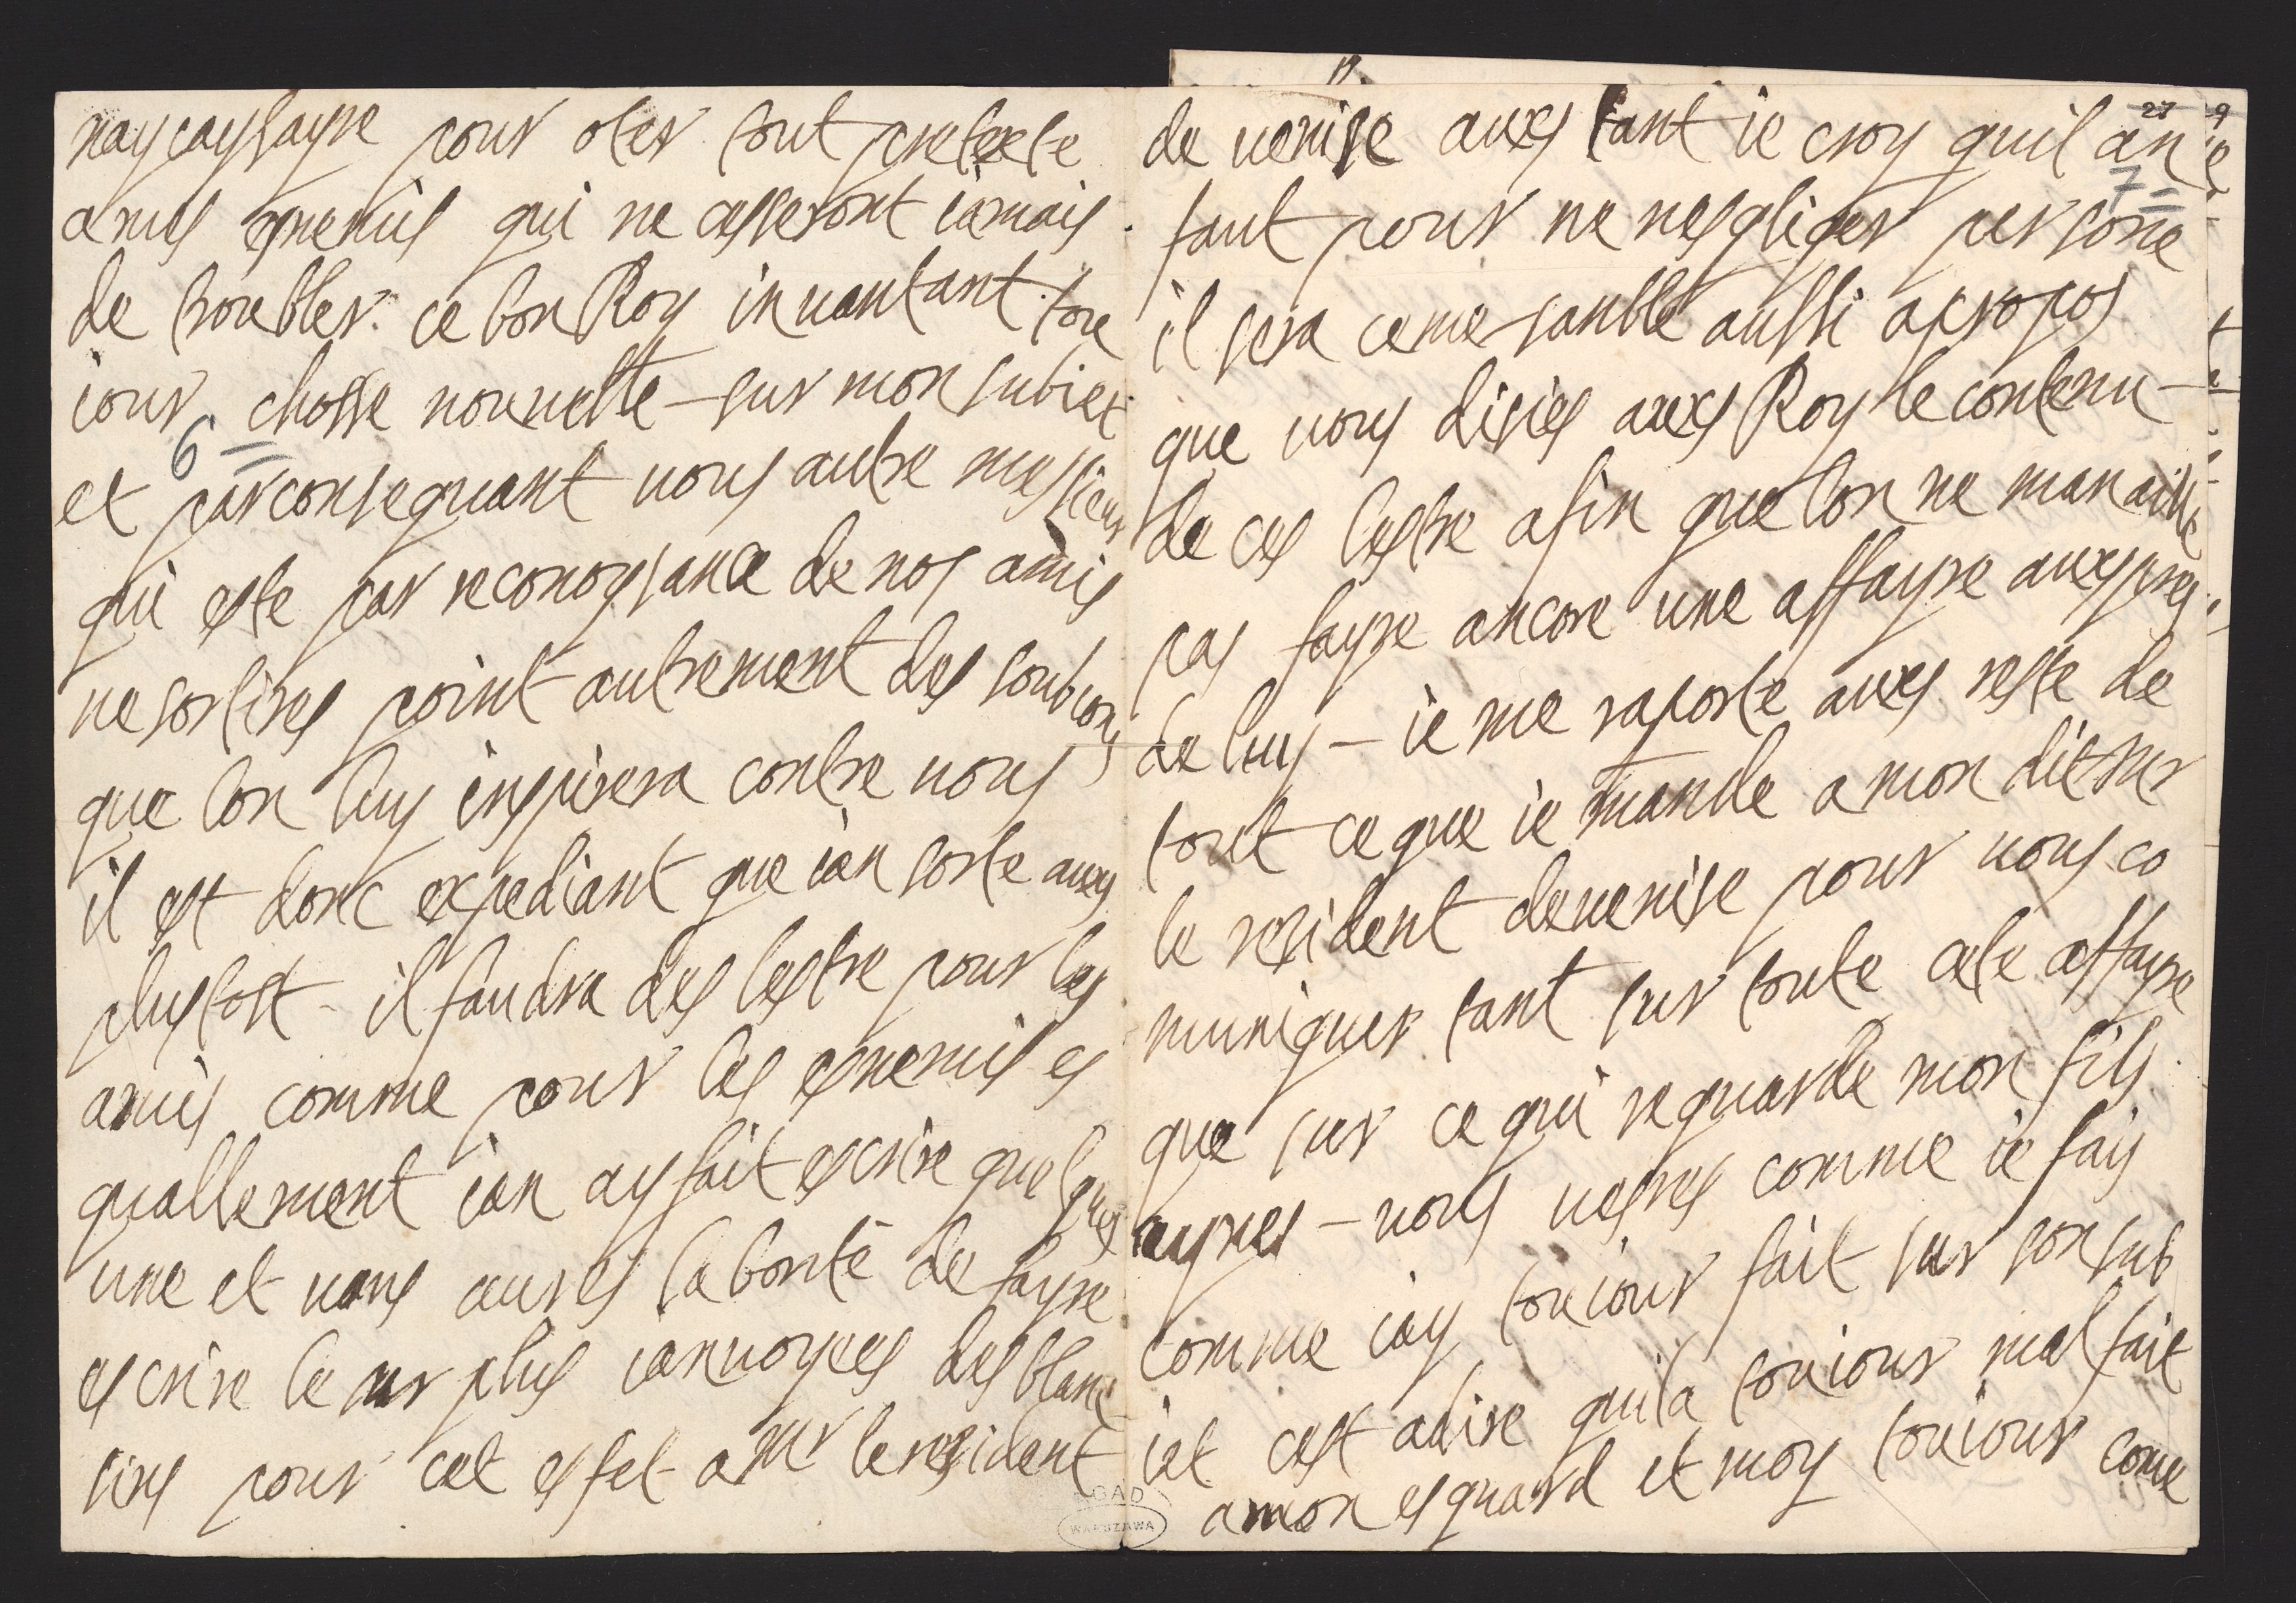 nay cay fayre pour oter tout pretexte
a mes esnemis qui ne cesseront iamais
de troubler ce bon Roy inuantant tou
iour chosse nouuelle sur mon subiet
6 =
et par consequant vous autre messieurs
qui este par reconoyssance de nos amis
ne sortires point autrement des soubcons
que lon luy inspirera contre vous
il est donc expediant que ian sorte auxs
plustost - il faudra des lestre pour les
amis comme pour les esnemis es
quallement ian ay fait escrire quelques
une et vous aures la bonte de fayre
escrire le sur plus ianuoyees des blanc
sins pour cet esfet a Mr le resident
27 9
de uenise auxs tant ie croy quil an
7 =
faut pour ne nesgliger persone
il sera ce me samble aussi apropos
que vous disies auxs Roy le contenu
de ces lestre afin que lon ne manaille
pas fayre ancore une affayre auxspres
de luy - ie me raporte auxs reste de
tout ce que ie mande a mon dit Mr
le resident de uenise pour vous co
muniquer tant sur toute cete affayre
que sur ce qui reguarde mon fils
aynes - vous uesres comme ie fais
comme iay touiour fait sur son sub
iet cest adire quil a touiour mal fait
a mon esguard et moy touiour come
AGAD
WARSZAWA